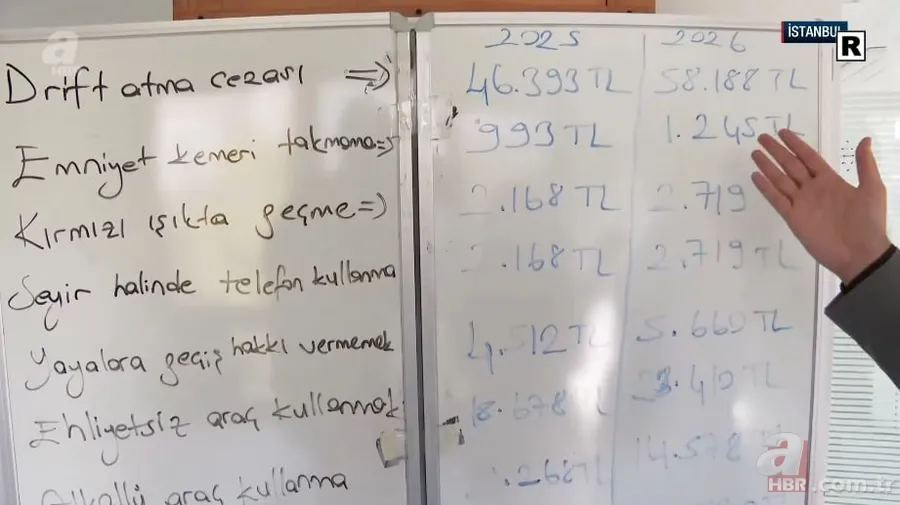 a
HBR
İSTANBUL
R
2025 2026
Drift atma cezası => 46.393 TL 58.188 TL
Emniyet kemeri takmama => 993 TL 1.245 TL
Kırmızı ışıkta geçme => 2.168 TL 2.719
Seyir halinde telefon kullanma 2.168 TL 2.719 TL
Yayalara geçiş hakkı vermemek 4.512 TL 5.660 TL
Ehliyetsiz araç kullanmak 18.678 TL
Alkollü araç kullanma .268 TL 14.578
a
HBR.com.tr